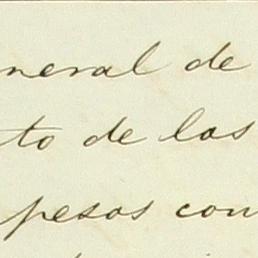 neral de
to de los
pesos con